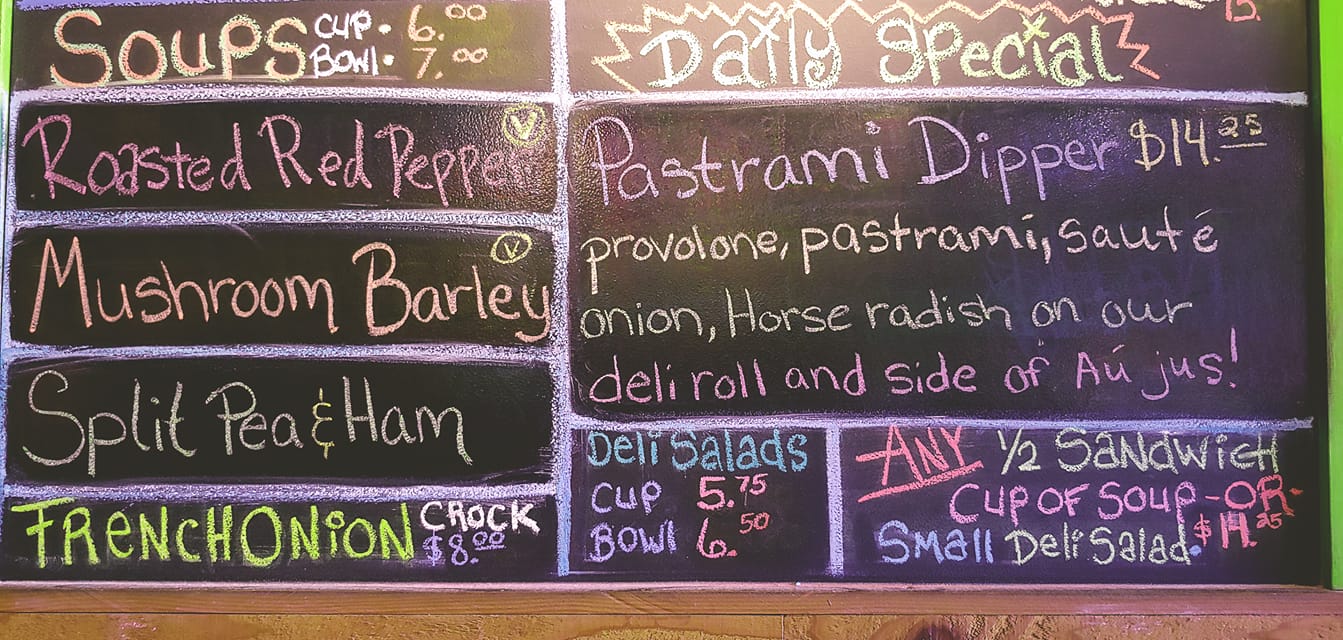 Soups CUP. 6.00
BOWL. 7.00
Roasted Red Pepper V
Mushroom Barley V
Split Pea & Ham
FRENCH ONiON CROCK
$8.00
15.
Daily Special
Pastrami Dipper $14.25
provolone, pastrami, sauté
onion, Horse radish on our
deli roll and side of Aú jus!
Deli Salads
CUP 5.75
BOWl 6.50
ANY 1/2 SANDWICH
CUP OF SOUP -OR-
Small Deli Salad. $14.25